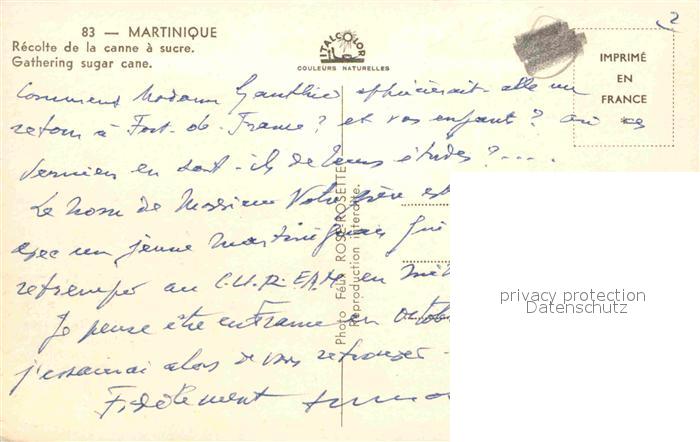 83 — MARTINIQUE
Récolte de la canne à sucre.
Gathering sugar cane.
ITALCOLOR
COULEURS NATURELLES
IMPRIMÉ
EN
FRANCE
*
2
Comment Madame Gauthier apprécierait-elle un
retour à Fort-de-France? et vos enfants? où ces
derniers en sont-ils de leurs études?....
Le nom de Monsieur Votre père est
avec un jeune martiniquais qui
au C.H.R.
Je pense être en France en octo
j'essaierai alors de vous retrouver.
Fidèlement
Photo Félix ROSE-ROSETTE
Reproduction interdite.
privacy protection
Datenschutz